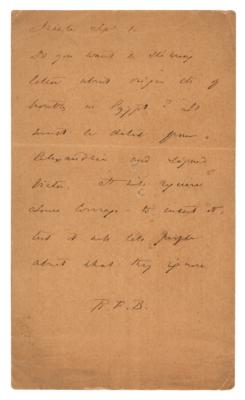 Sept 10
Do you want a strong
letter about origin etc of
troubles in Egypt? It
must be dated from
Alexandria and signed
It will require
some courage to insert it,
but it will let people
about what they ignore
R. F. B.